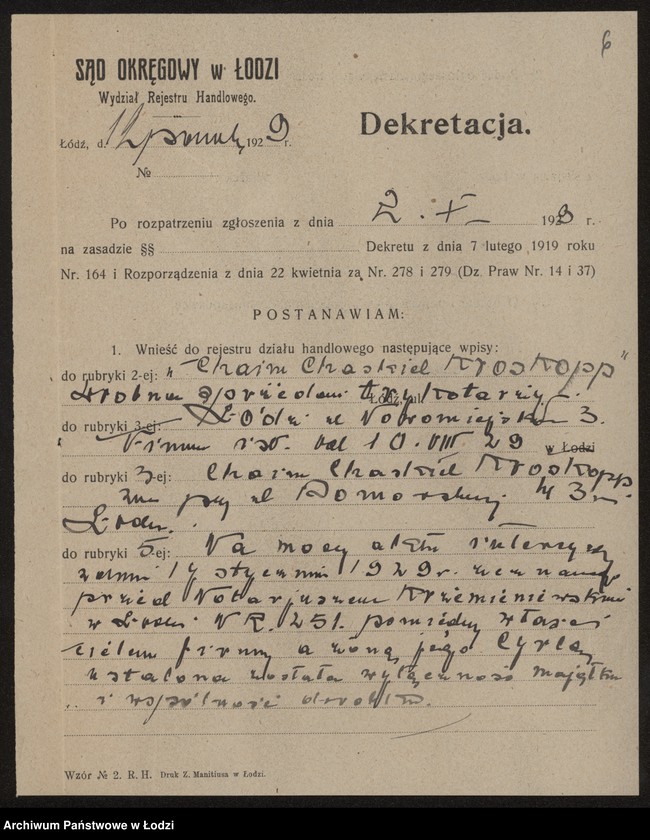 6
SĄD OKRĘGOWY w ŁODZI
Wydział Rejestru Handlowego.
Dekretacja.
Łódź, d. 1929 r.
№
Po rozpatrzeniu zgłoszenia z dnia 2. X 1929 r.
na zasadzie §§ Dekretu z dnia 7 lutego 1919 roku
Nr. 164 i Rozporządzenia z dnia 22 kwietnia za Nr. 278 i 279 (Dz. Praw Nr. 14 i 37)
POSTANAWIAM:
1. Wnieść do rejestru działu handlowego następujące wpisy:
do rubryki 2-ej: "Chaim Chaskiel Kroskopp"
drobna sprzedaż trykotarzy.
Łódź, ul.
do rubryki 3-ej: Łódź ul Nowomiejska 3.
Firma istn. od 10. VIII 29 w Łodzi
do rubryki 3-ej: Chaim Chaskiel Kroskopp.
zam przy ul Pomorskiej № 3
Łódź.
do rubryki 5-ej: Na mocy aktu intercyzy
z dnia stycznia 1929 r. zeznanego
przed Notarjuszem Krzemieniewskim
w Łodzi NR. 251. pomiędzy właści
cielem firmy a żoną jego Cyrlą
ustalona została wyłączność majątku
i wspólność dorobku.
Wzór № 2. R. H. Druk Z. Manitiusa w Łodzi.
Archiwum Państwowe w Łodzi